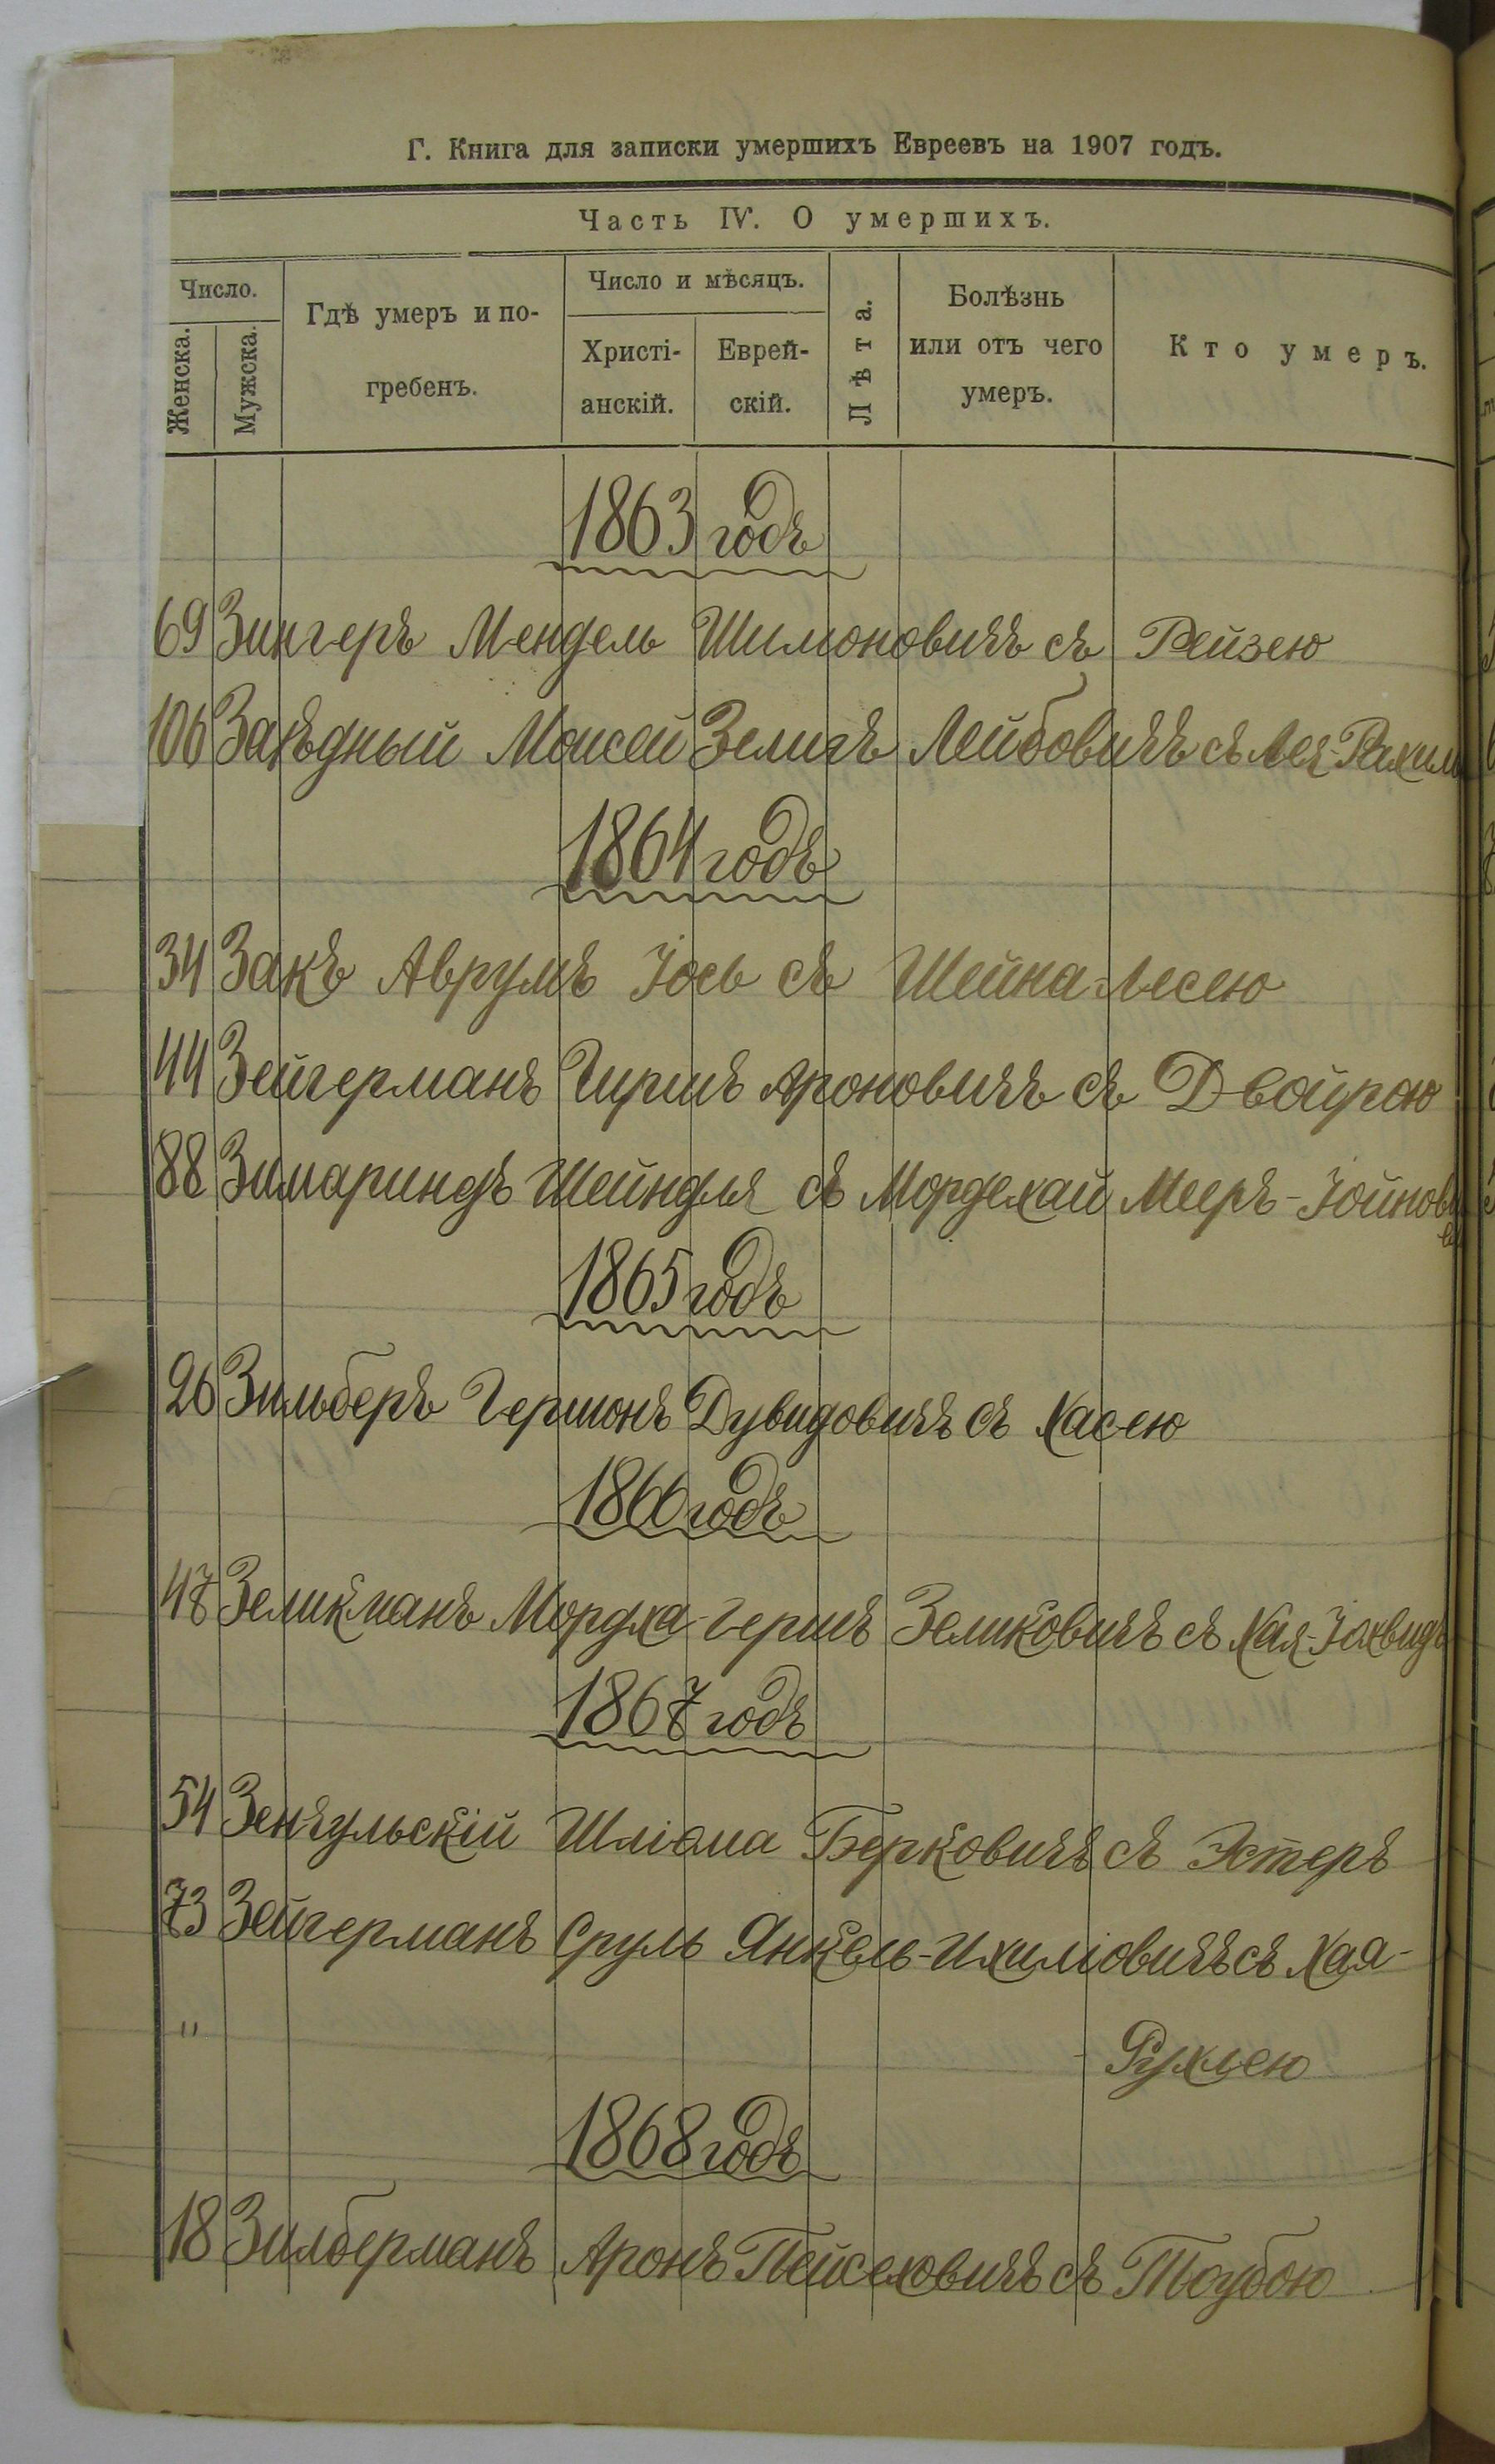 Г. Книга для записки умершихъ Евреевъ на 1907 годъ.
Часть IV. О умершихъ.
Число.
Женска.
Мужска.
Гдѣ умеръ и по-
гребенъ.
Число и мѣсяцъ.
Христі-
анскій.
Еврей-
скій.
Лѣта.
Болѣзнь
или отъ чего
умеръ.
Кто умеръ.
1863 годъ
69 Зингеръ Мендель Шимоновичъ съ Рейзею
106 Моисей Зелигъ Лейбовичъ съ Лея-Рахиль
1864 годъ
34 Закъ Аврумъ Іось съ Шейна-Лесею
44 Зейгерманъ Гиршъ Ароновичъ съ Двойрою
88 Зимариндъ Шейндля съ Мордехай Мееръ-Іойнов
1865 годъ
26 Зильберъ Гершонъ Дувидовичъ съ Хасею
1866 годъ
47 Зеликманъ Мордха-Гершъ Зеликовичъ съ Хая-Іохвидъ
1867 годъ
54 Зенчульскій Шліома Берковичъ съ Эстеръ
73 Зейгерманъ Сруль Янкель-Ихиліовичъ съ Хая-
" Рухлею
1868 годъ
18 Зилберманъ Аронъ Пейсеховичъ съ Таубою